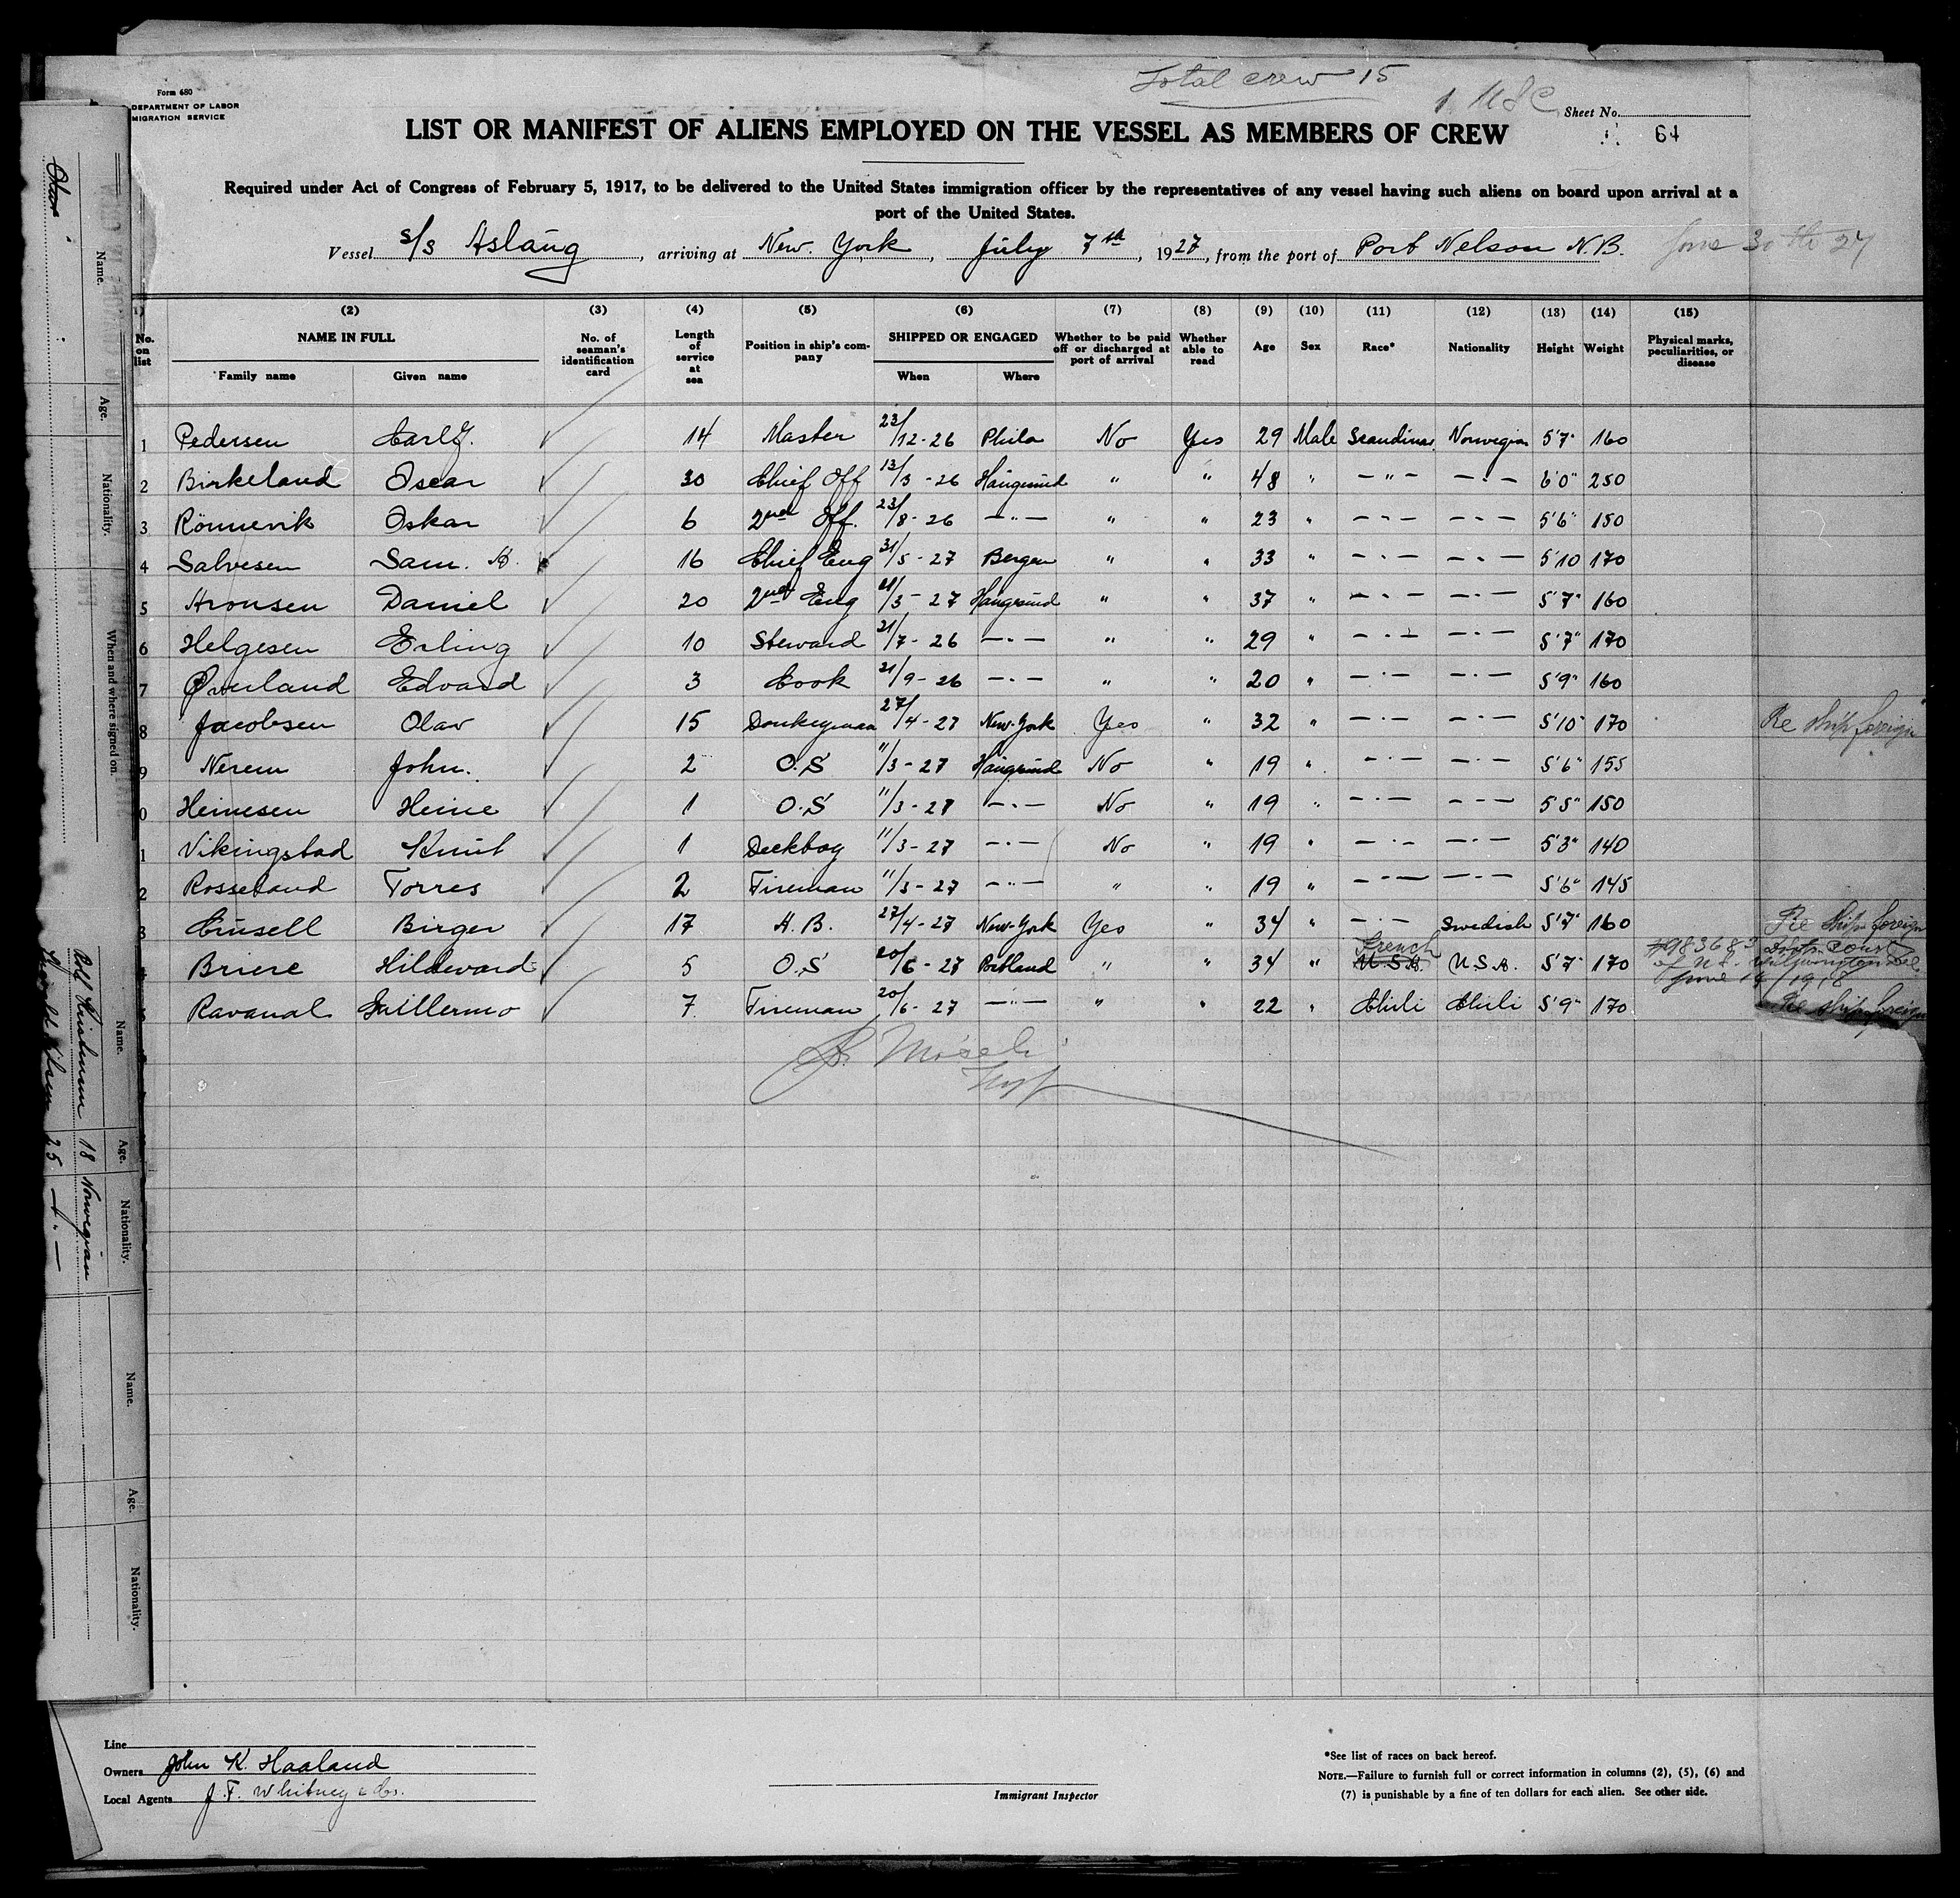 Total crew 15
1 USC
Form 680
DEPARTMENT OF LABOR
MIGRATION SERVICE
Sheet No.
64
LIST OR MANIFEST OF ALIENS EMPLOYED ON THE VESSEL AS MEMBERS OF CREW
Required under Act of Congress of February 5, 1917, to be delivered to the United States immigration officer by the representatives of any vessel having such aliens on board upon arrival at a
port of the United States.
Vessel S/S Aslaug, arriving at New. York, July 7th, 1927, from the port of Port Nelson N.B. June 30th 27
(2) (3) (4) (5) (6) (7) (8) (9) (10) (11) (12) (13) (14) (15)
No. on list NAME IN FULL Family name Given name No. of seaman's identification card Length of service at sea Position in ship's company SHIPPED OR ENGAGED When Where Whether to be paid off or discharged at port of arrival Whether able to read Age Sex Race* Nationality Height Weight Physical marks, peculiarities, or disease
1 Pedersen Carl J. ✓ 14 Master 23/12-26 Phila No Yes 29 Male Scandinav Norwegian 5'7" 160
2 Birkeland Oscar ✓ 30 Chief Off 13/3-26 Haugesund " " 48 " — " — — " — 6'0" 250
3 Rönnevik Oskar ✓ 6 2nd Off. 23/8-26 — " — " " 23 " — " — — " — 5'6" 150
4 Salvesen Sam. A. 16 Chief Eng 31/5-27 Bergen " " 33 " — " — — " — 5'10 170
5 Aronsen Daniel ✓ 20 2nd Eng /3-27 Haugesund " " 37 " — " — — " — 5'7" 160
6 Helgesen Erling ✓ 10 Steward 21/7-26 — " — " " 29 " — " — — " — 5'7" 170
7 Øverland Edvard ✓ 3 Cook 21/9-26 — " — " " 20 " — " — — " — 5'9" 160
8 Jacobsen Olav ✓ 15 Donkeyman 27/4-27 New-York Yes " 32 " — " — — " — 5'10" 170 Re ship foreign
9 Nerem John. ✓ 2 O.S 11/3-27 Haugesund No " 19 " — " — — " — 5'6" 155
0 Heinesen Heine ✓ 1 O.S 11/3-27 — " — No " 19 " — " — — " — 5'5" 150
1 Vikingstad Knut ✓ 1 Deckboy 11/3-27 — " — No " 19 " — " — — " — 5'3" 140
2 Rosseland Torres ✓ 2 Fireman 11/3-27 — " — " " 19 " — " — — " — 5'6" 145
3 Crusell Birger ✓ 17 A.B. 27/4-27 New-York Yes " 34 " — " — Swedish 5'7" 160 Re ship foreign
4 Briere Hildevard ✓ 5 O.S 20/6-27 Portland " " 34 " U.S.A. French U.S.A. 5'7" 170 #983683 Dist. Court
of U.S. Wilmington Del.
June 14/1918
Ravanal Guillermo ✓ 7 Fireman 20/6-27 — " — " " 22 " Chili Chili 5'9" 170 Re ship foreign
Line
Owners John K. Haaland
Local Agents J. F. Whitney & Co.
Immigrant Inspector
*See list of races on back hereof.
NOTE.—Failure to furnish full or correct information in columns (2), (5), (6) and
(7) is punishable by a fine of ten dollars for each alien. See other side.
Name. Age. Nationality. When and where signed on.
Name. Age. Nationality.
18 Norwegian
25 — " —
Name. Age. Nationality.